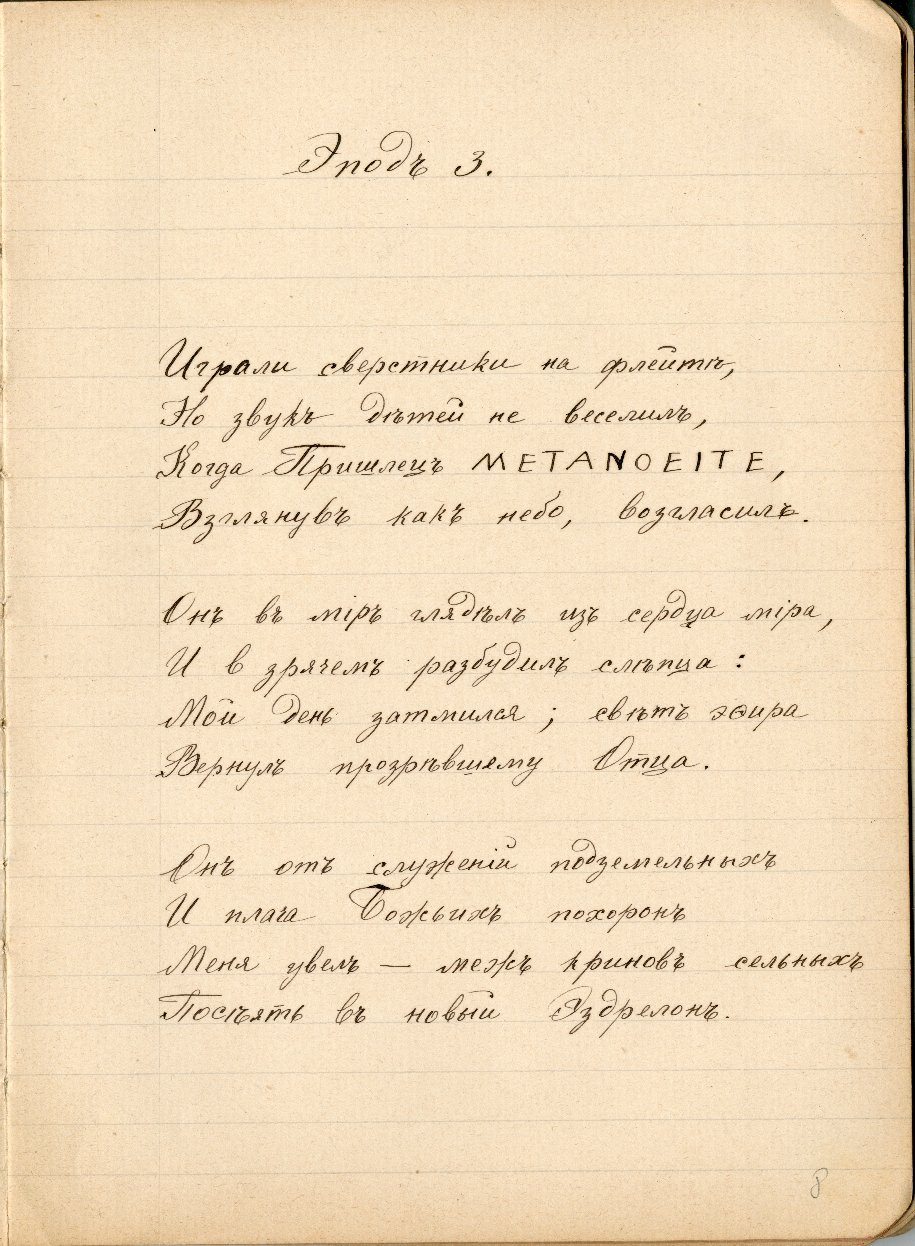 Эподъ 3.
Играли сверстники на флейтѣ,
Но звукъ дѣтей не веселилъ,
Когда Пришлецъ METANOEITE,
Взглянувъ какъ небо, возгласилъ.
Онъ въ мiръ глядѣлъ изъ сердца мiра,
И в зрячемъ разбудилъ слѣпца:
Мой день затмился; свѣтъ эѳира
Вернулъ прозрѣвшему Отца.
Онъ отъ служенiй подземельныхъ
И плача Божьихъ похоронъ
Меня увелъ — межъ криновъ сельныхъ
Посѣять въ новый Эздрелонъ.
8